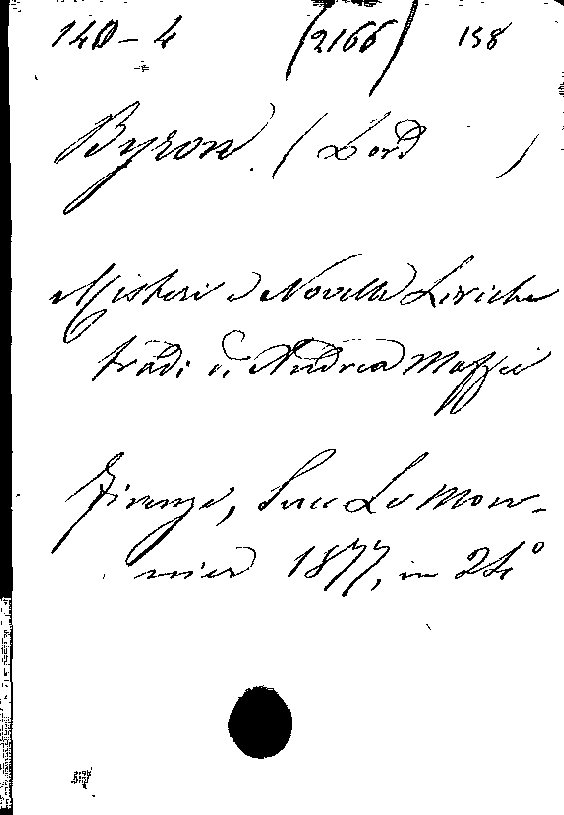 140-4 (2166) 158
Byron (Lord )
Misteri e Novelle Liriche
trad. di Andrea Maffei
Firenze, Succ Le Mon-
nier 1877, in 24°